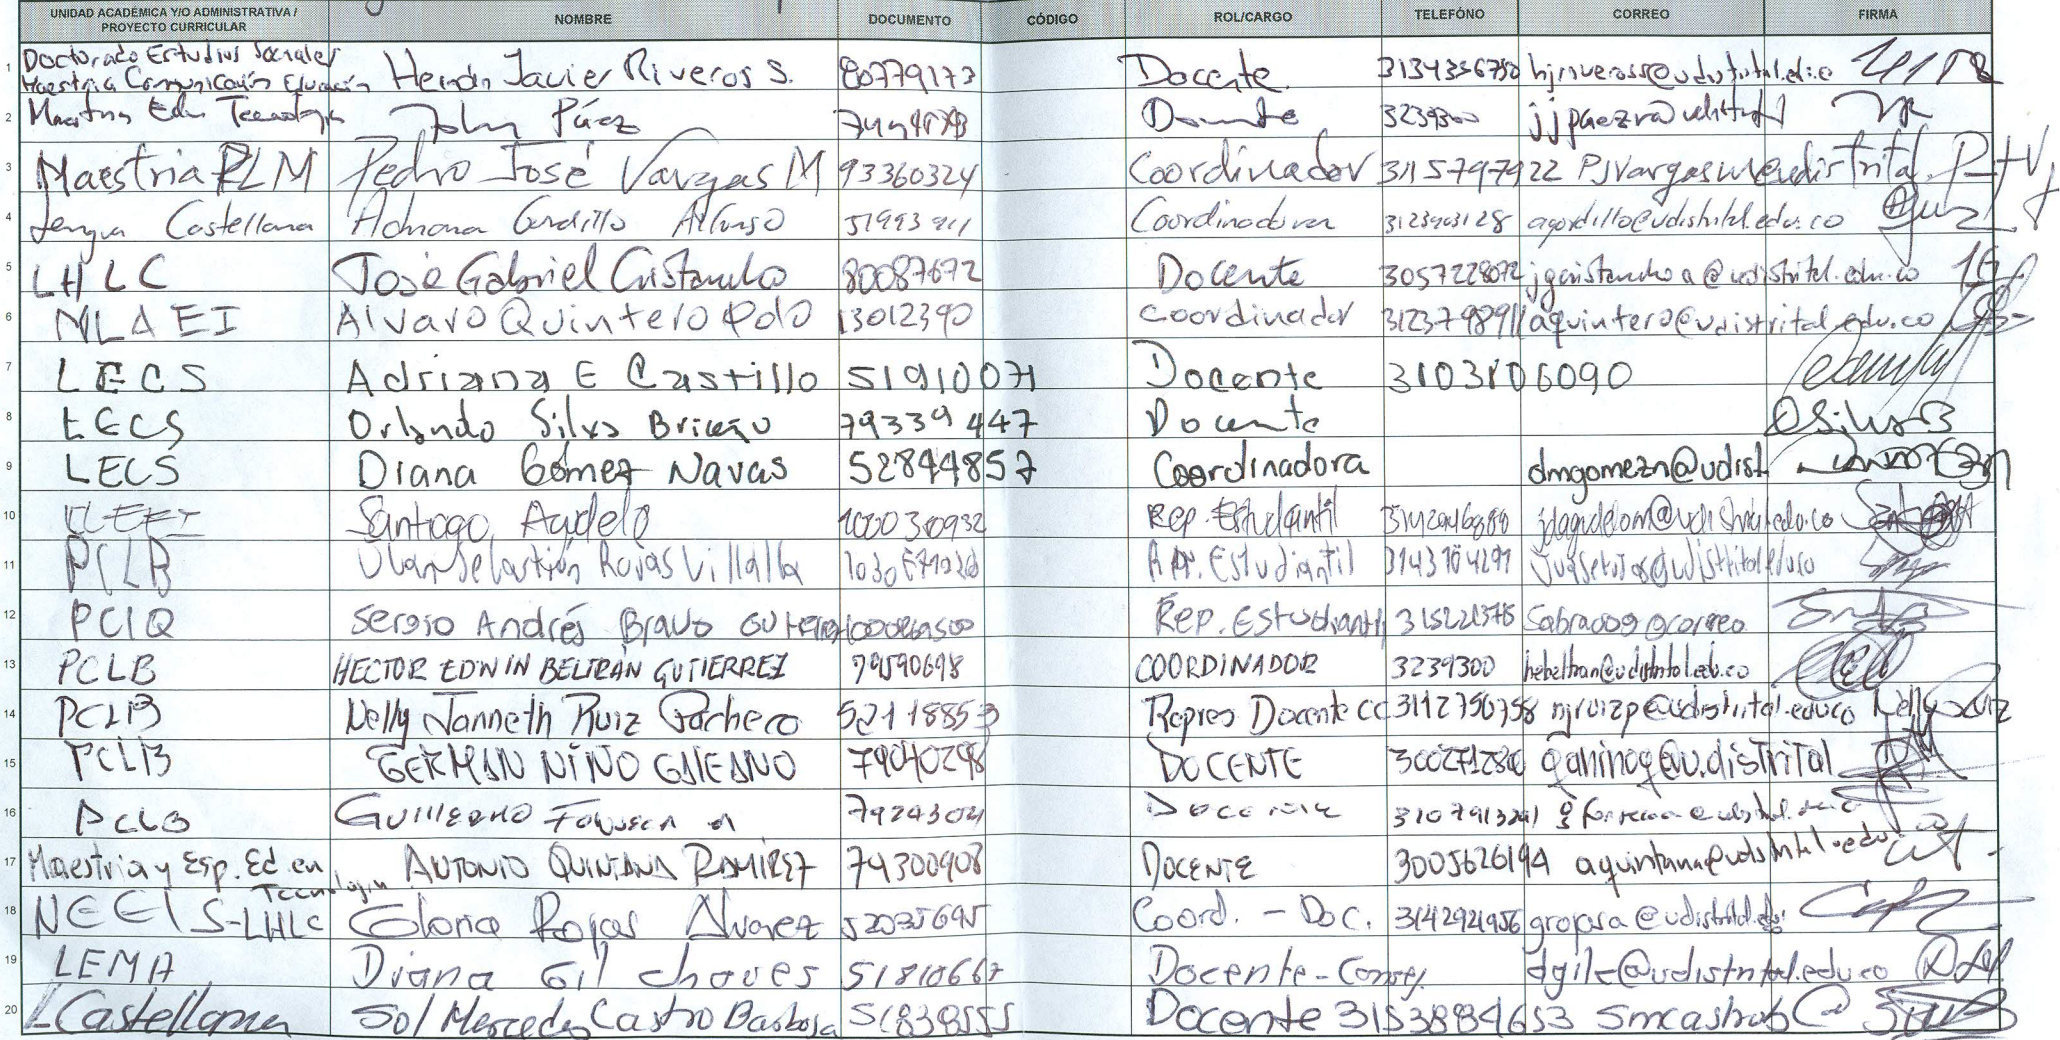 UNIDAD ACADÉMICA Y/O ADMINISTRATIVA / PROYECTO CURRICULAR NOMBRE DOCUMENTO CÓDIGO ROL/CARGO TELEFÓNO CORREO FIRMA
1 Doctorado Estudios Sociales
Maestria Comunicación Educación Hernán Javier Riveros S. 80779173 Docente 3134356750 hjriveross@udistrital.edu.co
2 Maestria Edu Tecnología John Páez Docente 3239300 jjpaezr@udistrital
3 Maestria PLM Pedro José Vargas M 93360324 Coordinador 3115797922 PJVargasm@udistrital.
4 Lengua Castellana Adriana Gordillo Alfonso 51993911 Coordinadora 3123903128 agordillo@udistrital.edu.co
5 LHLC José Gabriel Cristancho 80087672 Docente 3057228072 jgcristanchoa@udistrital.edu.co
6 MLAEI Alvaro Quintero Polo 13012390 Coordinador 3123798911 aquintero@udistrital.edu.co
7 LECS Adriana E Castillo 51910071 Docente 3103106090
8 LECS Orlando Silva Briceño 79339447 Docente OSilvaB
9 LECS Diana Gómez Navas 52844857 Coordinadora dmgomezn@udist
10 Santiago Agudelo 1000310932 Rep. Estudiantil
11 PCLB Rojas Villalba Rep. Estudiantil 3143704297
12 PCLQ Sergio Andrés Bravo Rep. Estudiantil
13 PCLB HECTOR EDWIN BELTRÁN GUTIERREZ 79590698 COORDINADOR 3239300 hebeltran@udistrital.edu.co
14 PCLB Nelly Janneth Ruiz Pacheco 52118853 Repres Docente CC 3112750758 njruizp@udistrital.edu.co Nelly Ruiz
15 PCLB GERMAN NIÑO GALEANO 79040298 DOCENTE ganinog@udistrital
16 PCLB Guillermo Fonseca A 79243021 Docente
17 Maestria y Esp. Ed. en
Tecnología ANTONIO QUINTANA RAMÍREZ 74300908 DOCENTE 3005626194 aquintana@udistrital.edu.co
18 NEEIS-LHLC Gloria Rojas Alvarez 52035695 Coord. - Doc. 3142921956
19 LEMA Diana Gil Chaves 51810667 Docente-Consej. dgilc@udistrital.edu.co
20 L Castellana Sol Mercedes Castro Barbosa 51838555 Docente 3153884653 smcastrob@